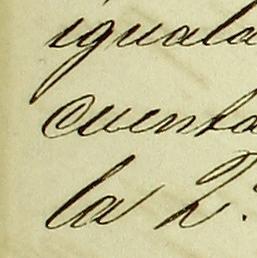 iguala
cuenta
la 2.